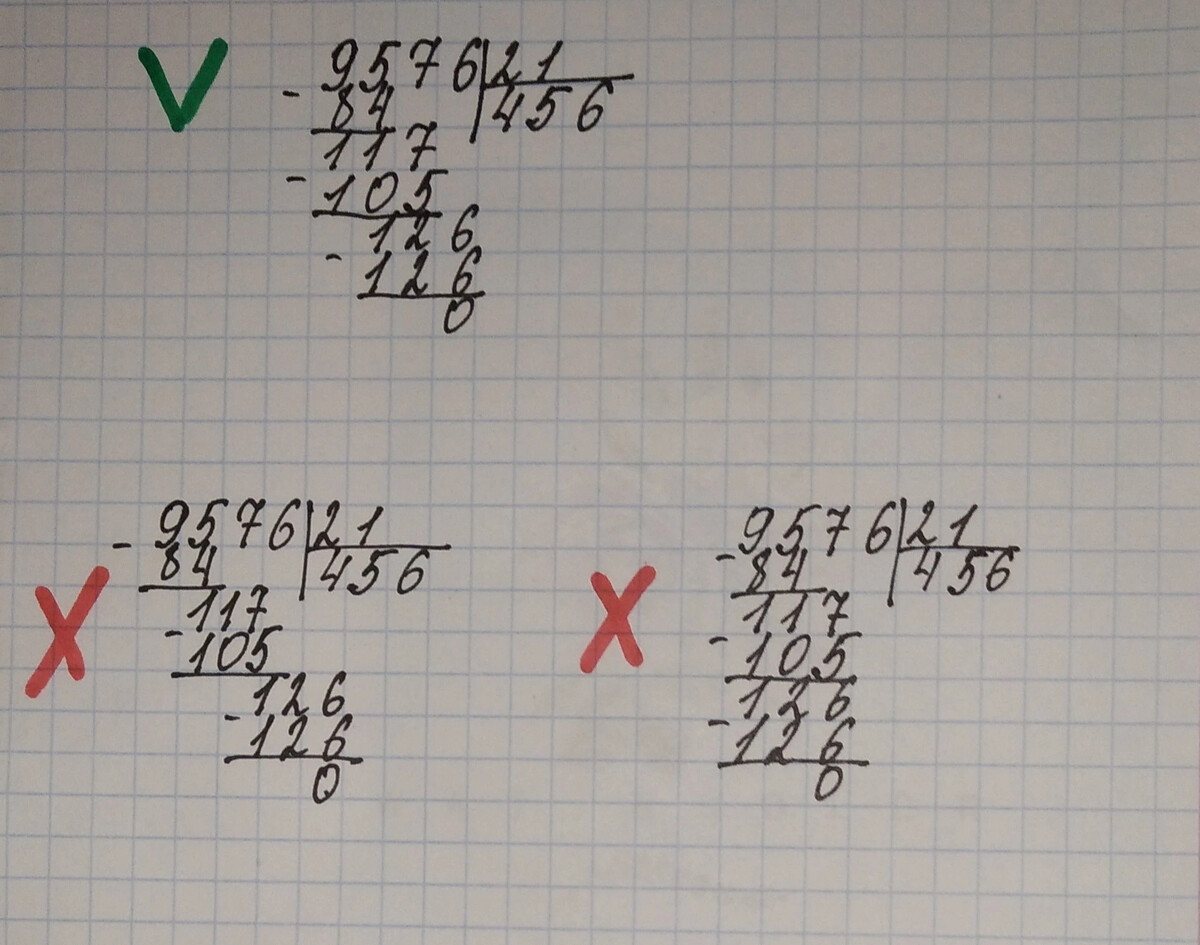 V
- 9576|21
84 |456
117
- 105
126
- 126
0
- 9576|21
84 |456
X
117
- 105
126
- 126
0
9576|21
- 84 |456
X
117
- 105
126
- 126
0